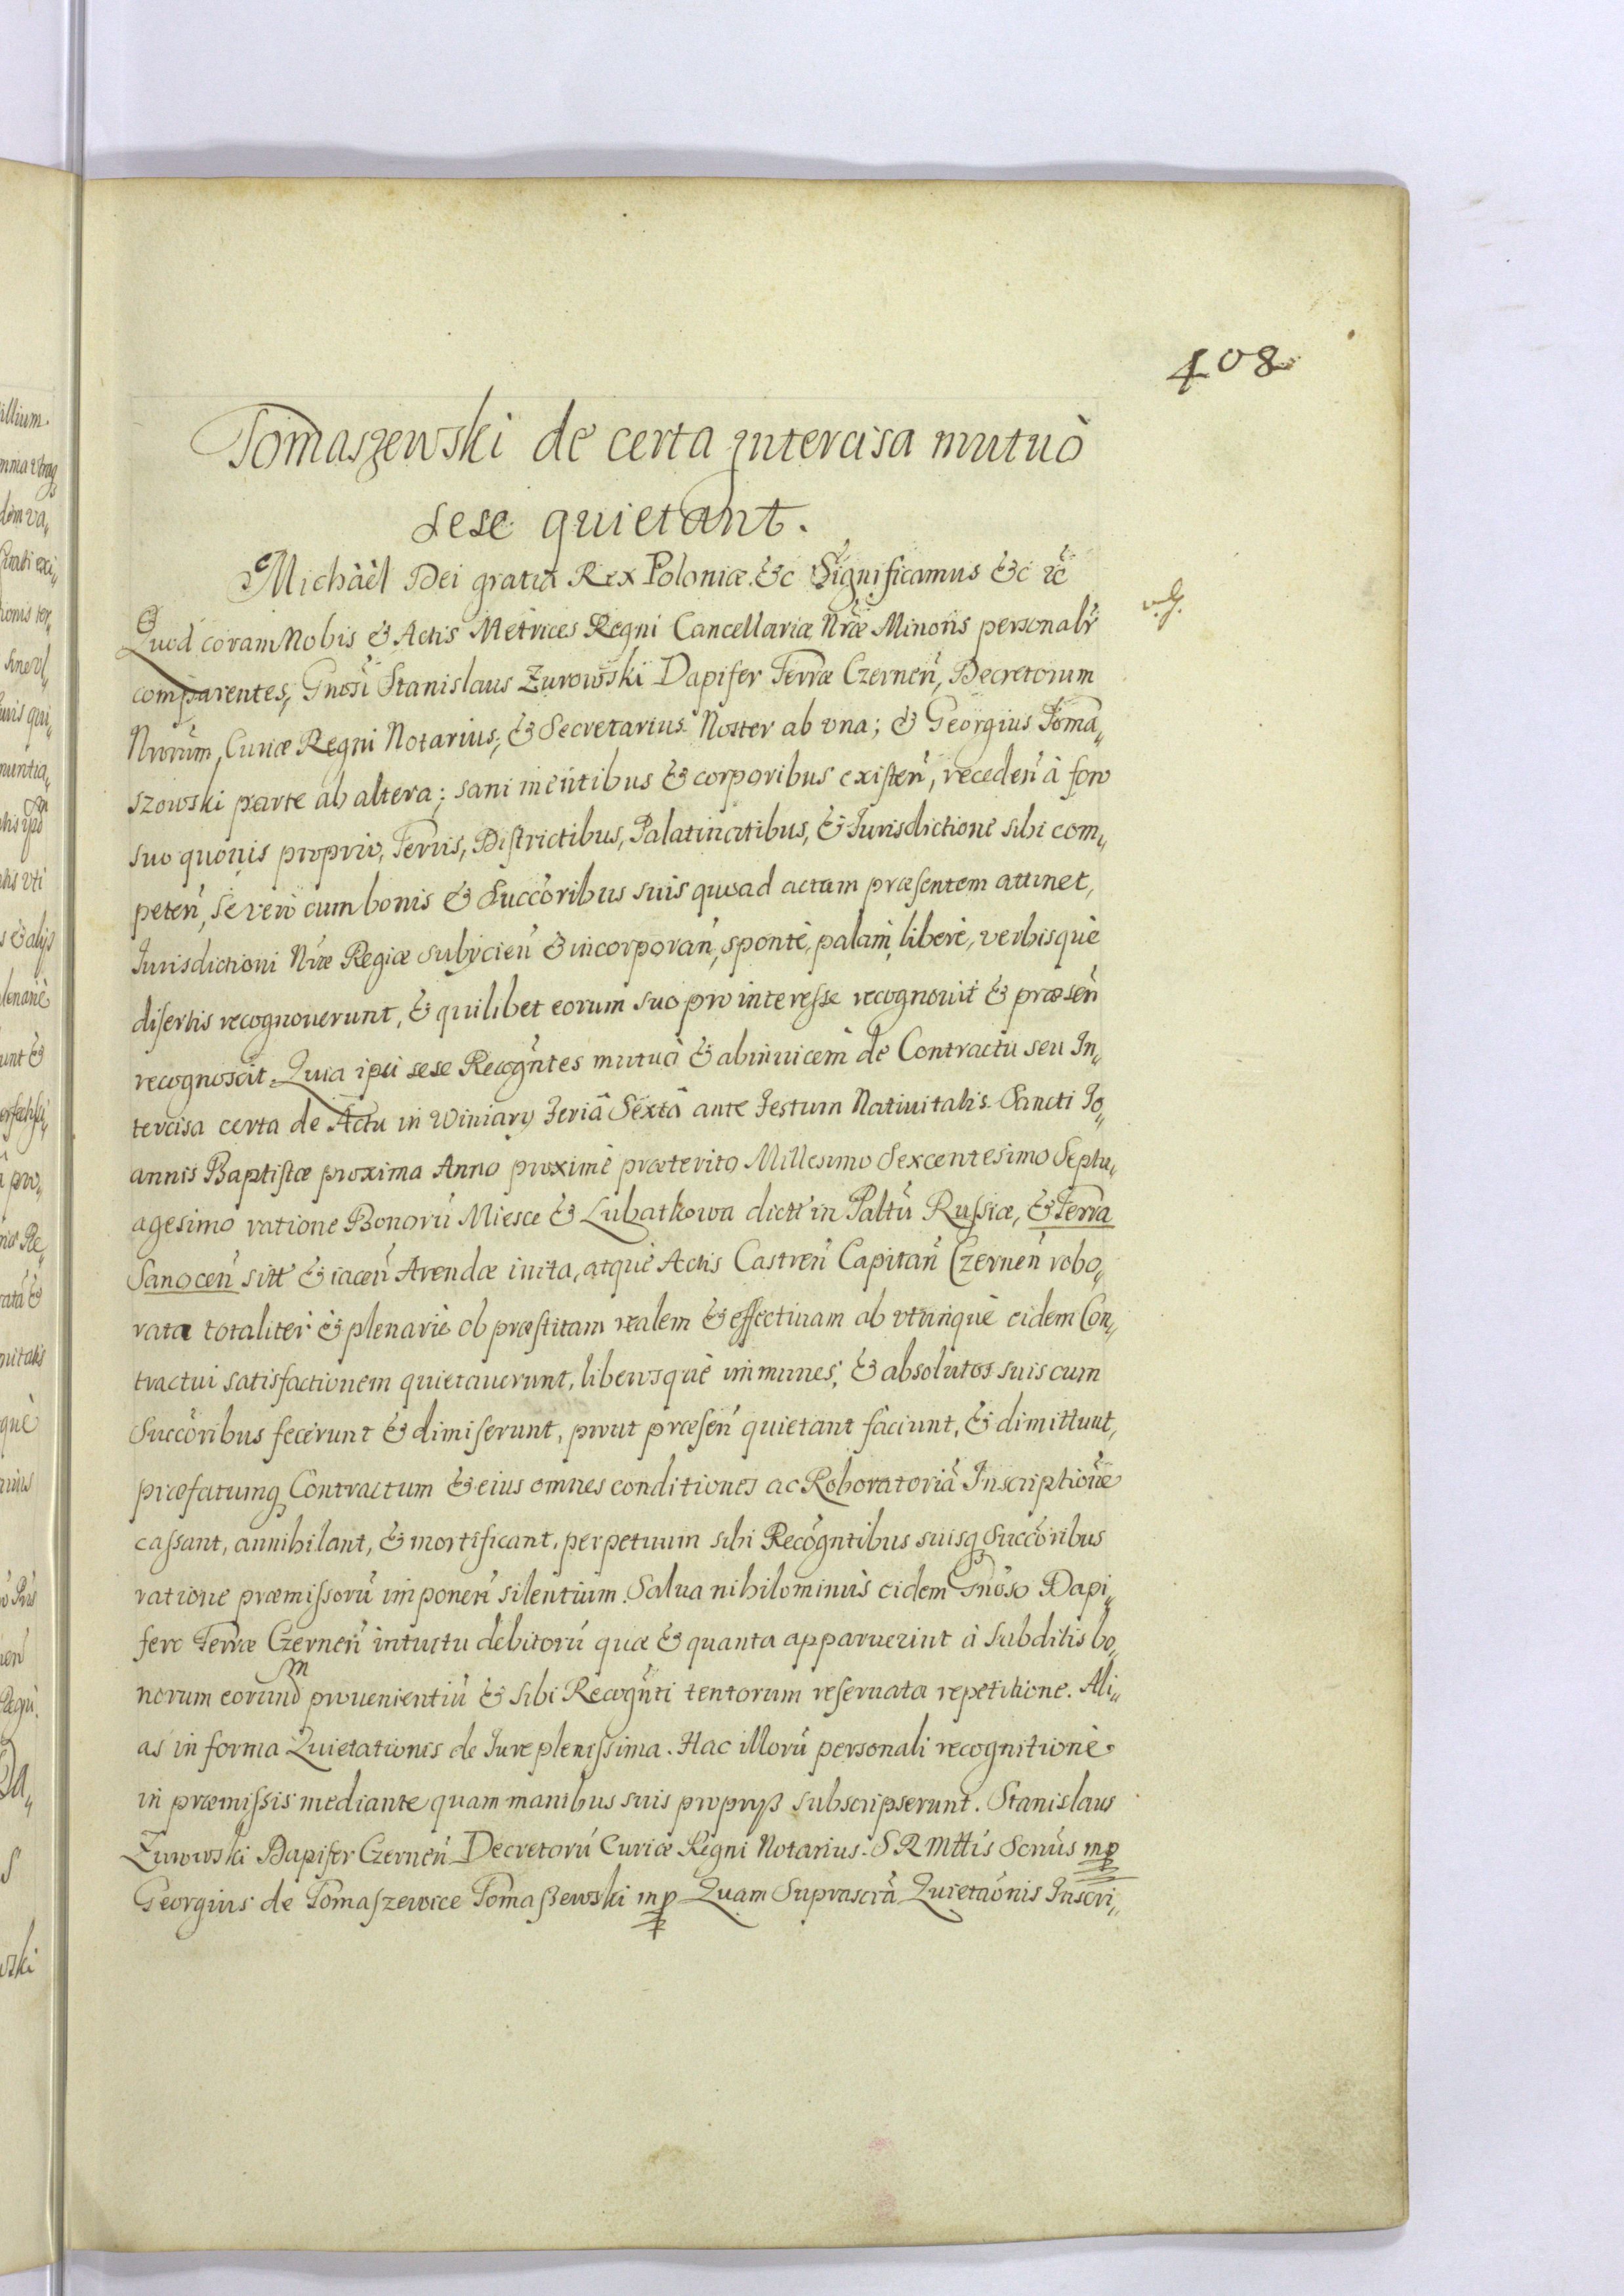 408
Tomaszewski de certa intercisa mutuò
sese quietant.
Michäèl Dei gratia Rex Poloniæ. &c Significamus &c &c
v. G.
Quod coram Nobis & Actis Metrices Regni Cancellariæ Nræ Minoris personalr
comparentes, Gnosi Stanislaus Zurowski Dapifer Terræ Czernen, Decretorum
Nrorum, Curiæ Regni Notarius, & Secretarius Noster ab vna; & Georgius Toma„
szowski parte ab altera; sani mentibus & corporibus existen, receden à foro
suo quouis proprio, Terris, Districtibus, Palatinatibus, & Jurisdictione sibi com„
peten, se vero cum bonis & Succoribus suis quoad actum præsentem attinet,
Jurisdictioni Nræ Regiæ subijcien & incorporan, spontè, palam, liberè, verbisquè
disertis recognouerunt, & quilibet eorum suo pro interesse recognouit & præsen
recognoscit. Quia ipsi sese Recogntes mutuò & abinuicem de Contractu seu In„
tercisa certa de Actu in Winiary Feriâ Sextâ ante Festum Natiuitatis Sancti Jo„
annis Baptistæ proxima Anno proximè præterito Millesimo Sexcentesimo Septu„
agesimo ratione Bonorū Miesce & Lubatkowa dictt in Paltū Russiæ, & Terra
Sanocen sitt & iacen Arendæ inita, atquè Actis Castren Capitan Czernen robo„
rata totaliter & plenariè ob præstitam realem & effectiuam ab vtrinquè eidem Con„
tractui satisfactionem quietauerunt, liberosquè immunes, & absolutos suis cum
Succoribus fecerunt & dimiserunt, prout præsen quietant faciunt, & dimittunt,
præfatumq Contractum & eius omnes conditiones ac Roboratoriā Inscriptionē
cassant, annihilant, & mortificant, perpetuum sibi Recogntibus suisq Succoribus
ratione præmissorū imponen silentium. Salua nihilominùs eidem Gnoso Dapi„
fero Terræ Czernen intuitu debitorū quæ & quanta apparuerint à subditis bo„
norum eorundm prouenientiū & sibi Recognti tentorum reseruata repetitione. Ali„
as in forma Quietationis de Jure plenissima. Hac illorū personali recognitionè
in præmissis mediante quam manibus suis proprijs subscripserunt. Stanislaus
Zurowski Dapifer Czernen Decretorū Curiæ Regni Notarius S R Mttis Scrius mp
Georgius de Tomaszewice Tomaszewski mp Quam Suprascrā Quietaonis Inscri„